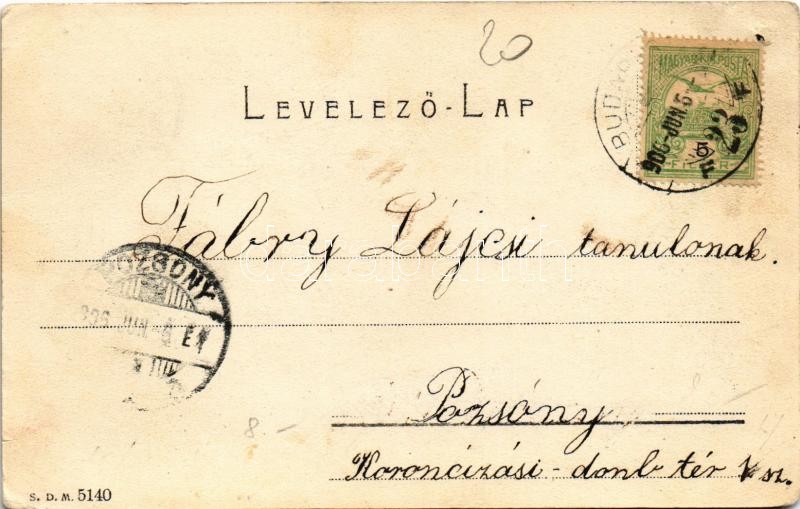 20
MAGYAR KIR. POSTA
BUDAP
906 JUN. 5
23
F
LEVELEZŐ-LAP
Fábry Lajcsi tanulonak.
POZSONY
906 JUN. 6 E
8.-
Pozsóny
Koronázási-domb tér 1 sz.
S. D. M. 5140